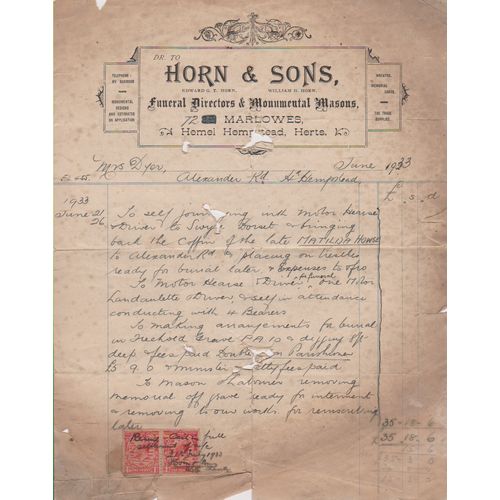 DR. TO
HORN & SONS,
EDWARD G. T. HORN. WILLIAM H. HORN.
Funeral Directors & Monumental Masons,
72 MARLOWES,
Hemel Hempstead, Herts.
TELEPHONE
MONUMENTAL
DESIGNS
AND ESTIMATES
ON APPLICATION
WREATHS,
MEMORIAL CARDS,
THE TRADE
SUPPLIED.
Mrs Dyer, June 1933
Alexander Rd Hl Hempstead
£ s d
1933
June 21/26
To self journeying with Motor Hearse
& Driver to Swyre Dorset & bringing
back the Coffin of the late MATILDA HOWSE
to Alexander Rd & placing on trestles
ready for burial later, & Expenses to & fro
To Motor Hearse & Driver for funeral one Motor
Landaulette & Driver, & self in attendance
conducting with 4 Bearers
To making arrangements for burial
in Freehold Grave FA 10 & digging 8ft
deep, fees paid Double Non Parishioner
& Minister fees paid
To Mason & Labourer removing
memorial off grave ready for interment
& removing to our works for reinscribing
later
35-18-6
£ 35-18-6
Recd Cash in full
settlement
July 1933